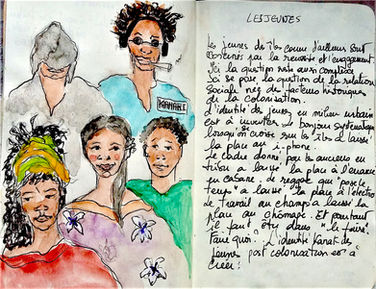 KANAKI
LES JEUNES
Les jeunes de îles comme d'ailleurs sont
par la réussite et l'engagement
Ici la question reste aussi complexe
Ici se pose la question de la relation
sociale né de facteurs historiques
de la colonisation.
L'identité des jeunes en milieu urbain
est à inventer le bonjour systématique
lorsqu'on croise sur les îles a laissé
la place au i-phone.
Le cadre donné par les anciens en
tribu a laissé la place à l'errance
en cabane ; de reggae qui "pose le
temps" a laissé la place à l'électro
de travail au champ a laissé la
place au chômage. Et pourtant
il faut être dans "le faire".
Faire quoi... L'identité Kanak des
jeunes post colonisation est à
créer !